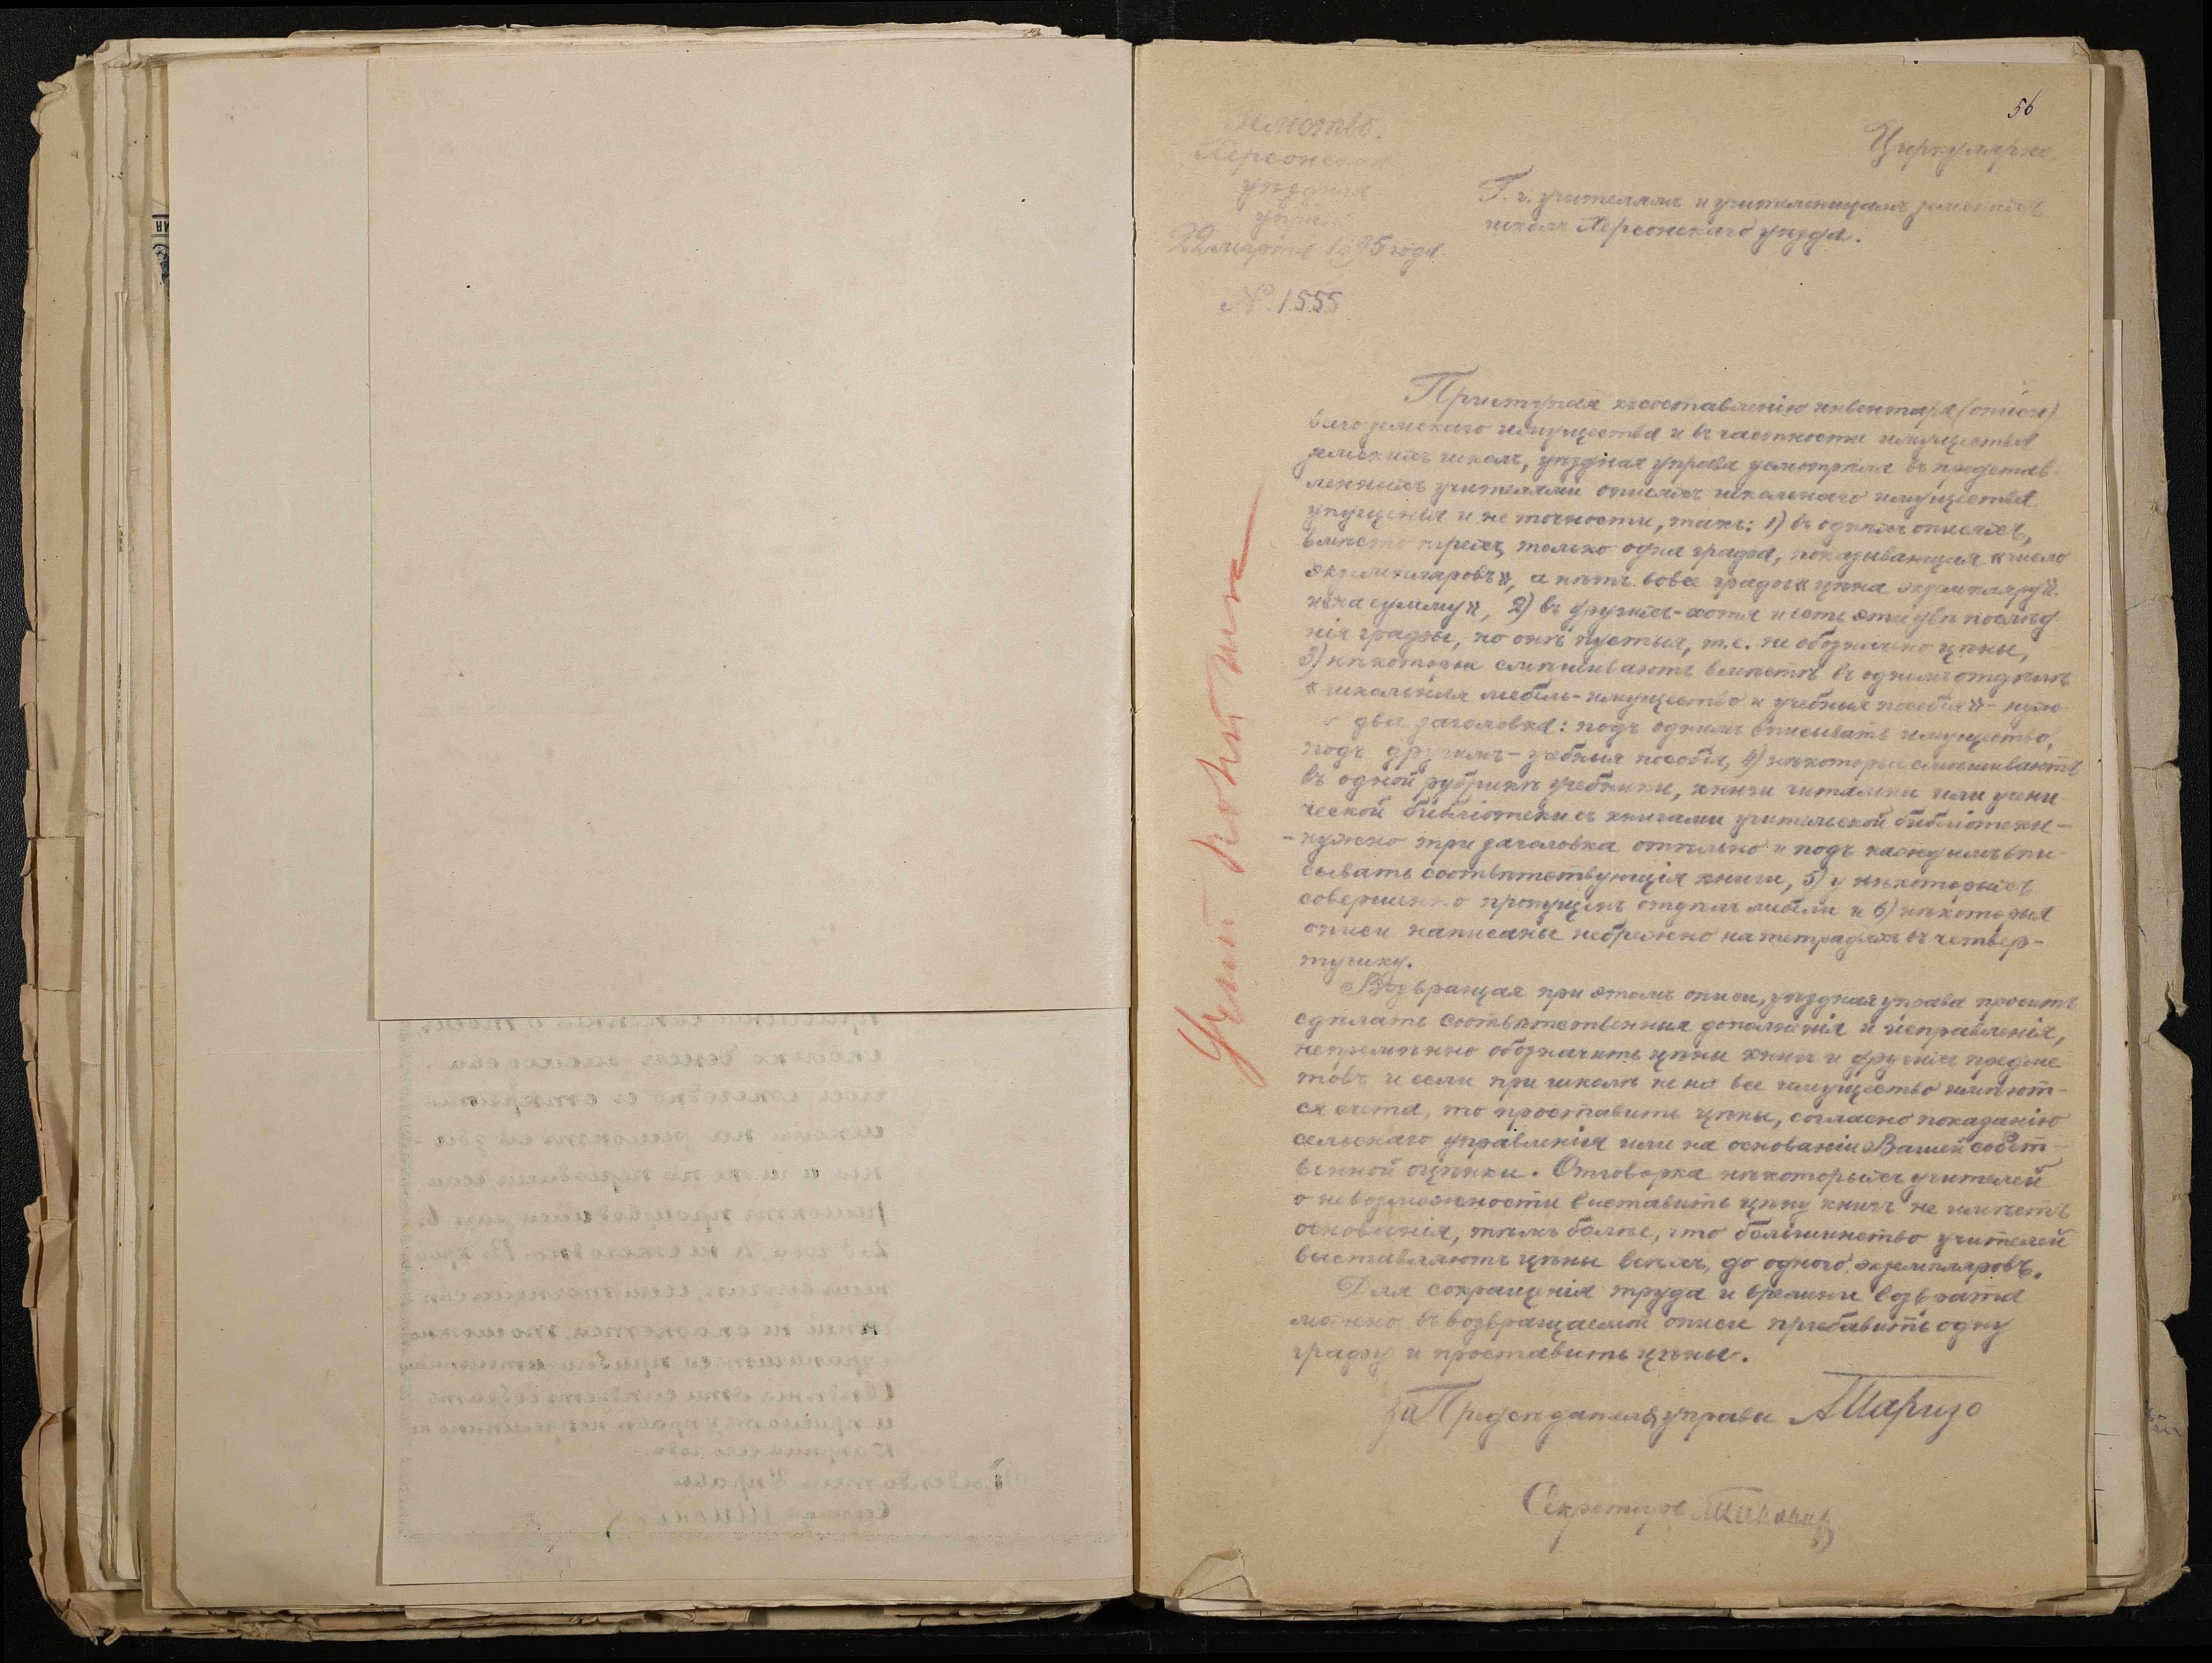 56
Циркулярно.
Херсонская
уѣздная
управа
22 марта 1895 года.
№ 1555
Г. г. учителямъ и учительницамъ земскихъ
школъ Херсонскаго уѣзда.
Приступая къ составленію инвентаря (описи)
всего земскаго имущества и въ частности имущества
земскихъ школъ, уѣздная управа усмотрѣла въ представ-
ленныхъ учителями описяхъ школьнаго имущества
упущенія и неточности, такъ: 1) въ однихъ описяхъ,
вмѣсто трехъ, только одна графа, показывающая «число
экземпляровъ», а нѣтъ вовсе графъ «цѣна экземпляру»
и «на сумму», 2) въ другихъ - хотя и есть эти двѣ послѣд
нія графы, но онѣ пустыя, т.е. не обозначено цѣны,
3) нѣкоторые смѣшиваютъ вмѣстѣ въ одномъ отдѣлѣ
«школьная мебель - имущество и учебныя пособія» - нуж
о два заголовка: подъ однимъ вписывать имущество,
подъ другимъ - учебныя пособія, 4) нѣкоторые смѣшиваютъ
въ одной рубрикѣ учебники, книги читальни или учени
ческой библіотеки съ книгами учительской библіотеки -
- нужно три заголовка отдѣльно и подъ каждымъ впи-
сывать соотвѣтствующія книги, 5) у нѣкоторыхъ
совершенно пропущенъ отдѣлъ мебели и 6) нѣкоторыя
описи написаны небрежно на тетрадяхъ въ четвер-
тушку.
Возвращая при этомъ описи, уѣздная управа проситъ
сдѣлать соотвѣтственныя дополненія и исправленія,
непремѣнно обозначить цѣны книгъ и другихъ предме
товъ и если при школѣ не на все имущество имѣют-
ся счета, то проставить цѣны, согласно показанію
сельскаго управленія или на основаніи Вашей собст
венной оцѣнки. Отговорка нѣкоторыхъ учителей
о невозможности выставить цѣну книгъ не имѣетъ
основанія, тѣмъ болѣе, что большинство учителей
выставляютъ цѣны всѣхъ, до одного, экземпляровъ.
Для сокращенія труда и времени возврата
можно въ возвращаемой описи прибавить одну
графу и проставить цѣны.
за Предсѣдателя управы
Секретарь